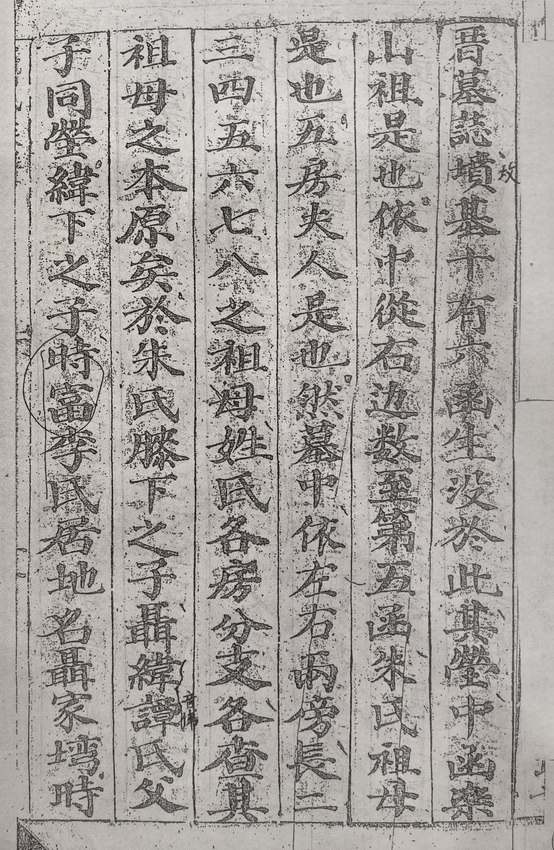 晋墓誌墳墓十有六函生没於此其塋中函樂
山祖是也依中從右边数至第五函朱氏祖母
是也五房夫人是也然墓中依左右両傍長二
三四五六七八之祖母姓氏各房分支各畨其
祖母之本原矣於朱氏滕下之子聶緯譚氏父
子同塋緯下之子時富李氏居地名聶家塆時